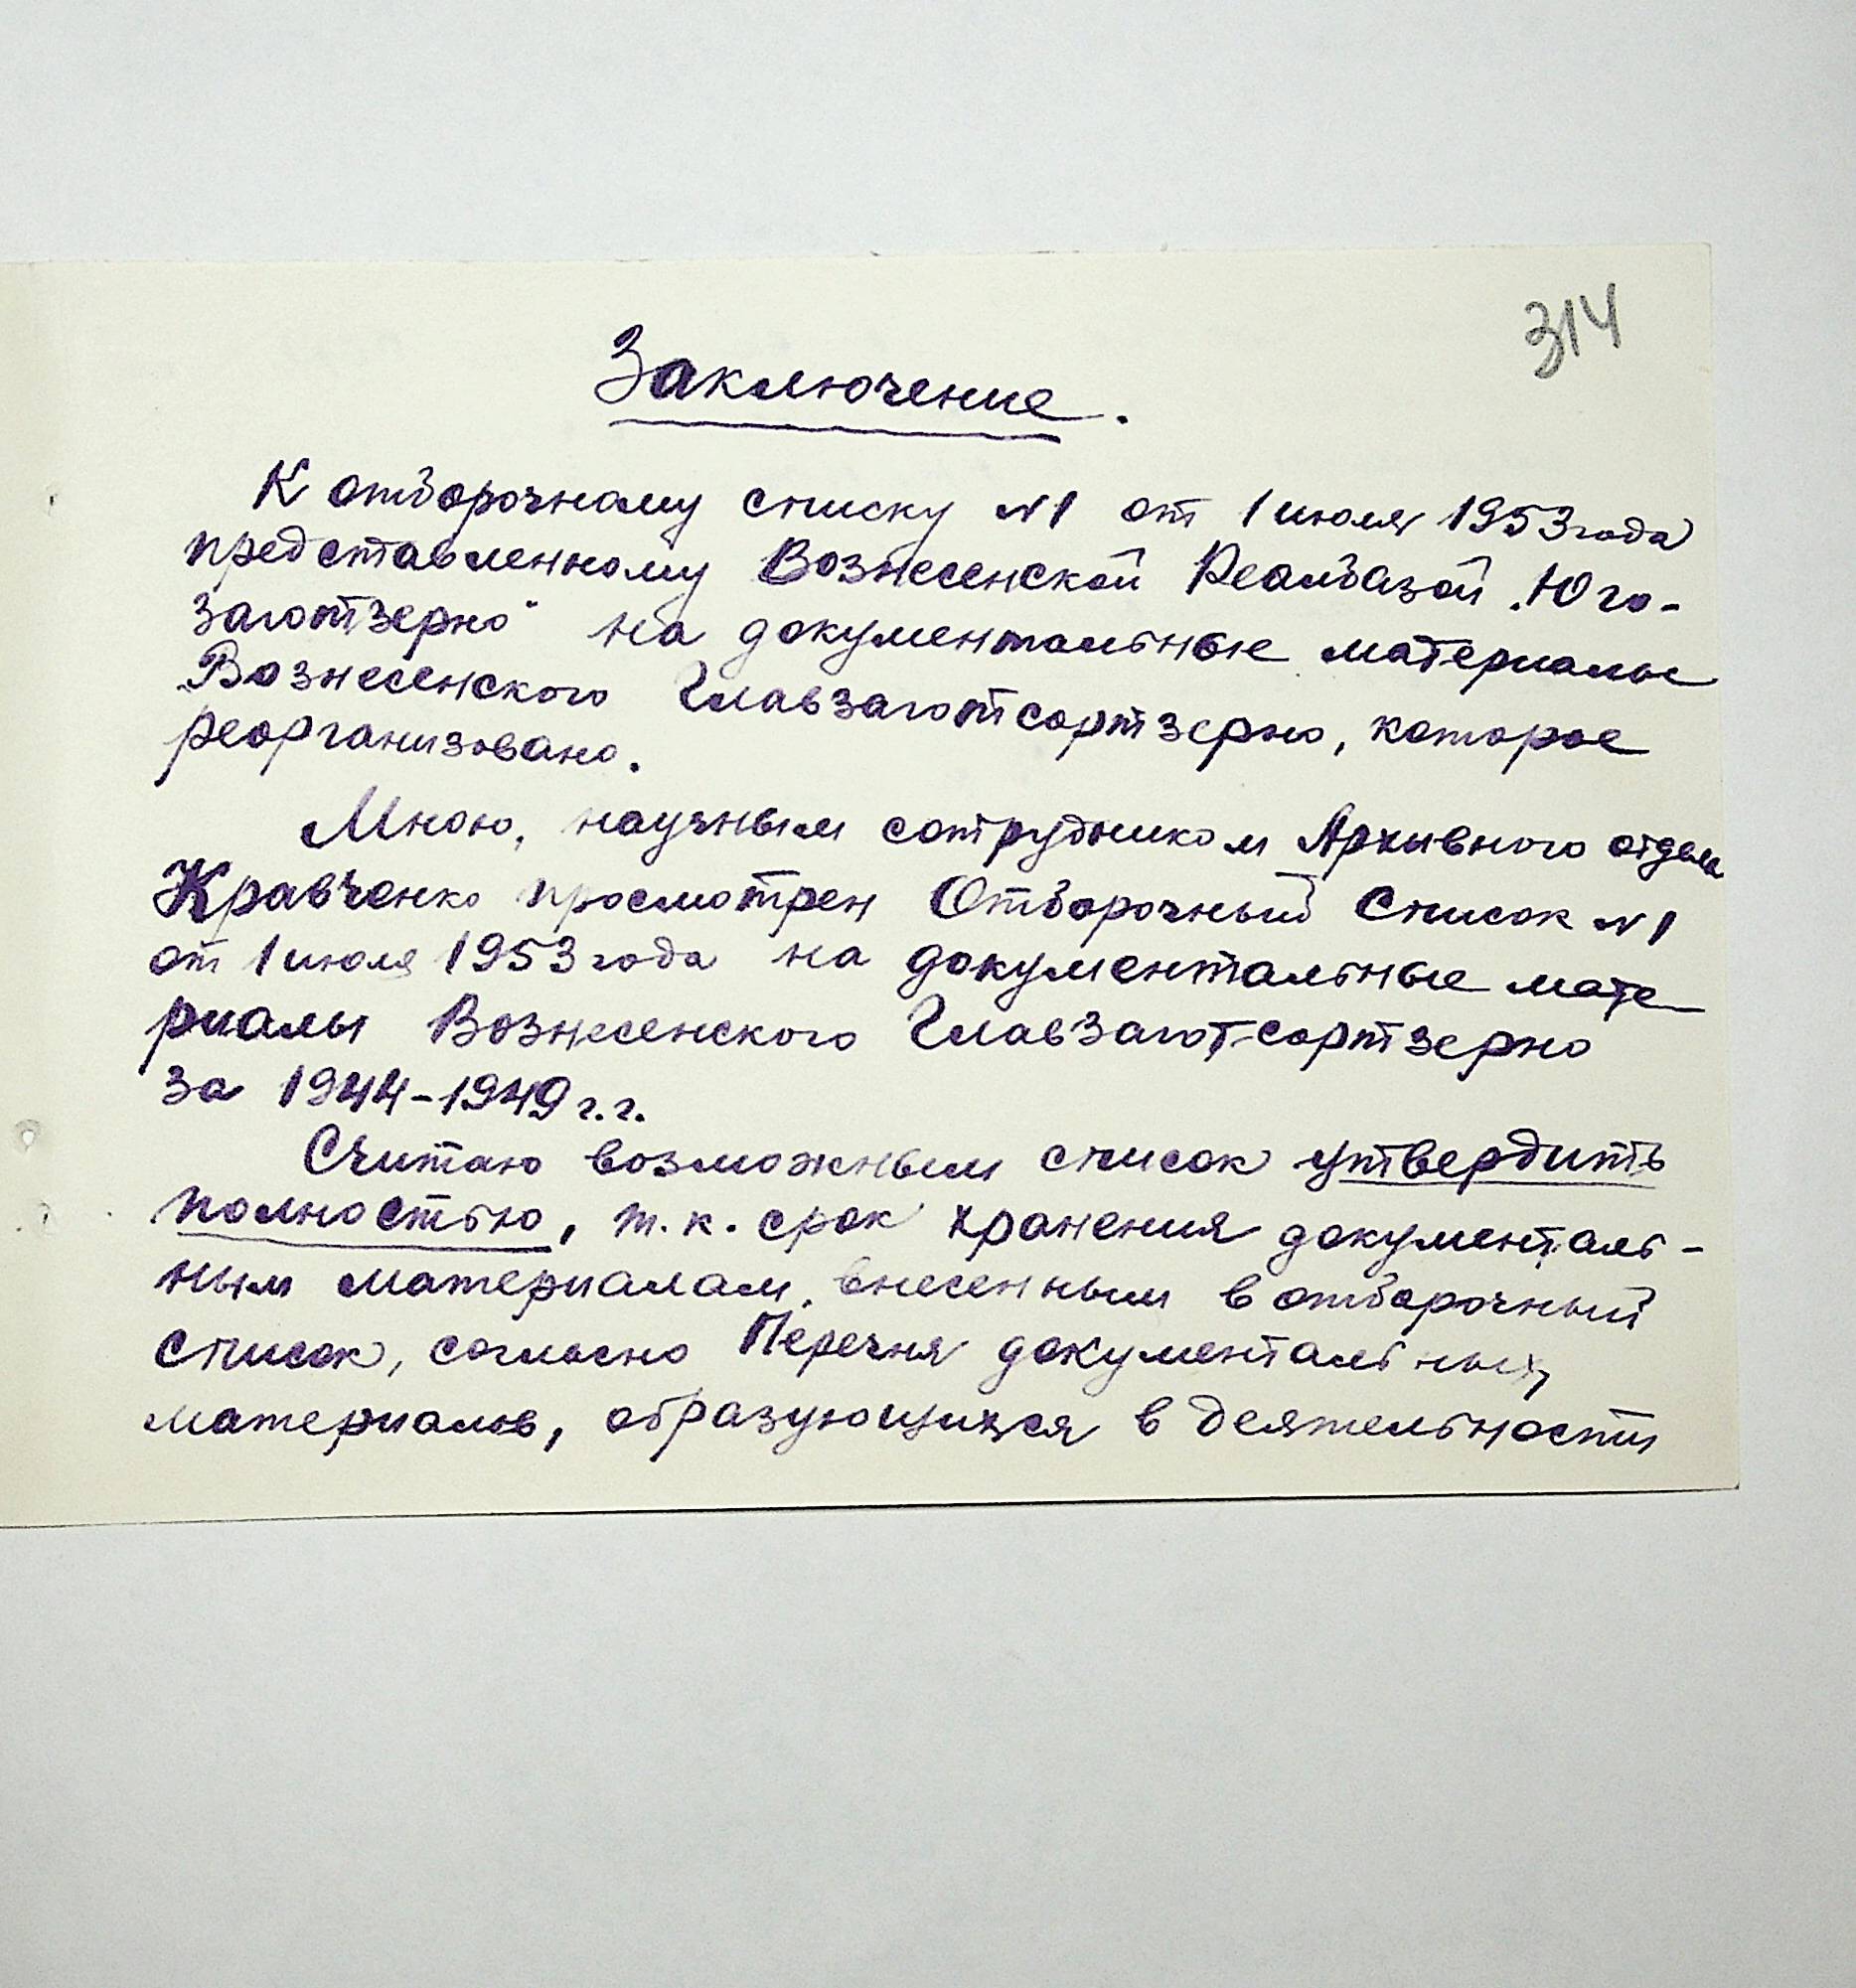 314
Заключение.
К отборочному списку №1 от 1 июля 1953 года
представленному Вознесенской Реалбазой „Юго-
Заготзерно“ на документальные материалы
Вознесенского Главзаготсортзерно, которое
реорганизовано.
Мною, научным сотрудником Архивного отдела
Кравченко просмотрен Отборочный Список №1
от 1 июля 1953 года на документальные мате
риалы Вознесенского Главзаготсортзерно
за 1944-1949 г.г.
Считаю возможным список утвердить
полностью, т.к. срок хранения документаль-
ным материалам, внесенным в отборочный
список, согласно Перечня документальных,
материалов, образующихся в деятельности